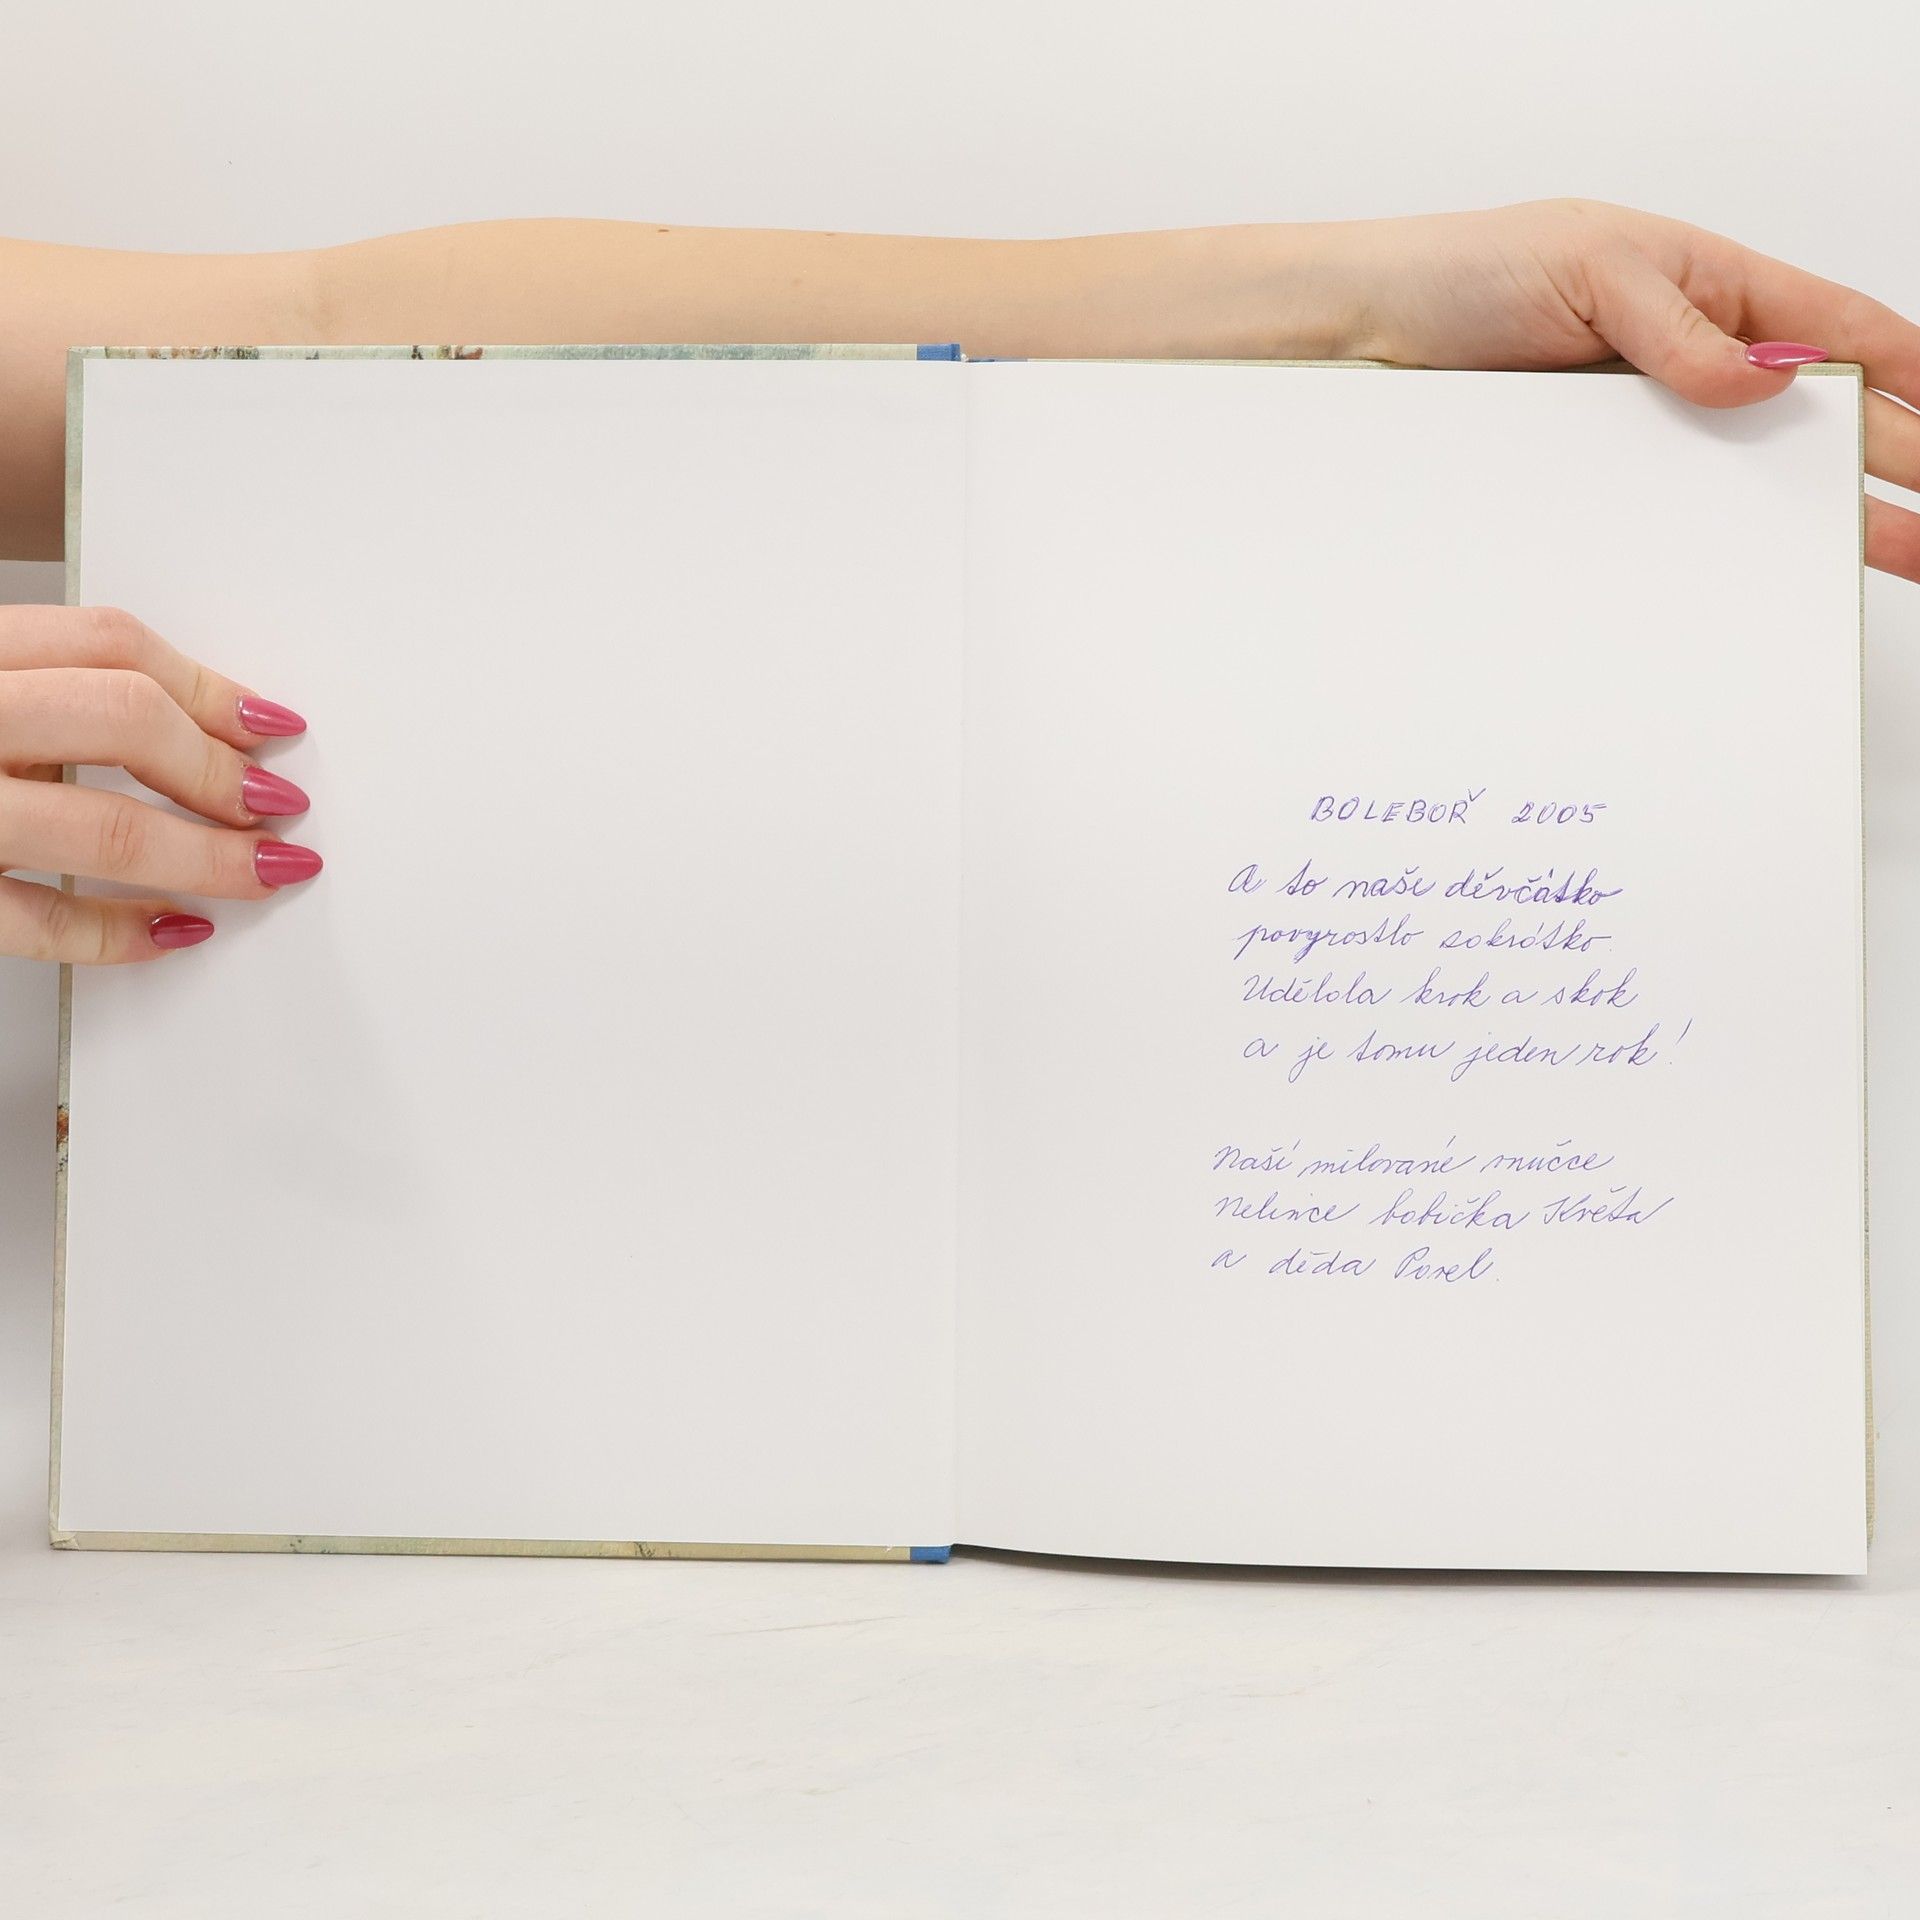 BOLEBOŘ 2005
A to naše děvčátko
povyrostlo zakrátko.
Udělala krok a skok
a je tomu jeden rok!
Naší milované vnučce
Nelince babička Květa
a děda Pavel.